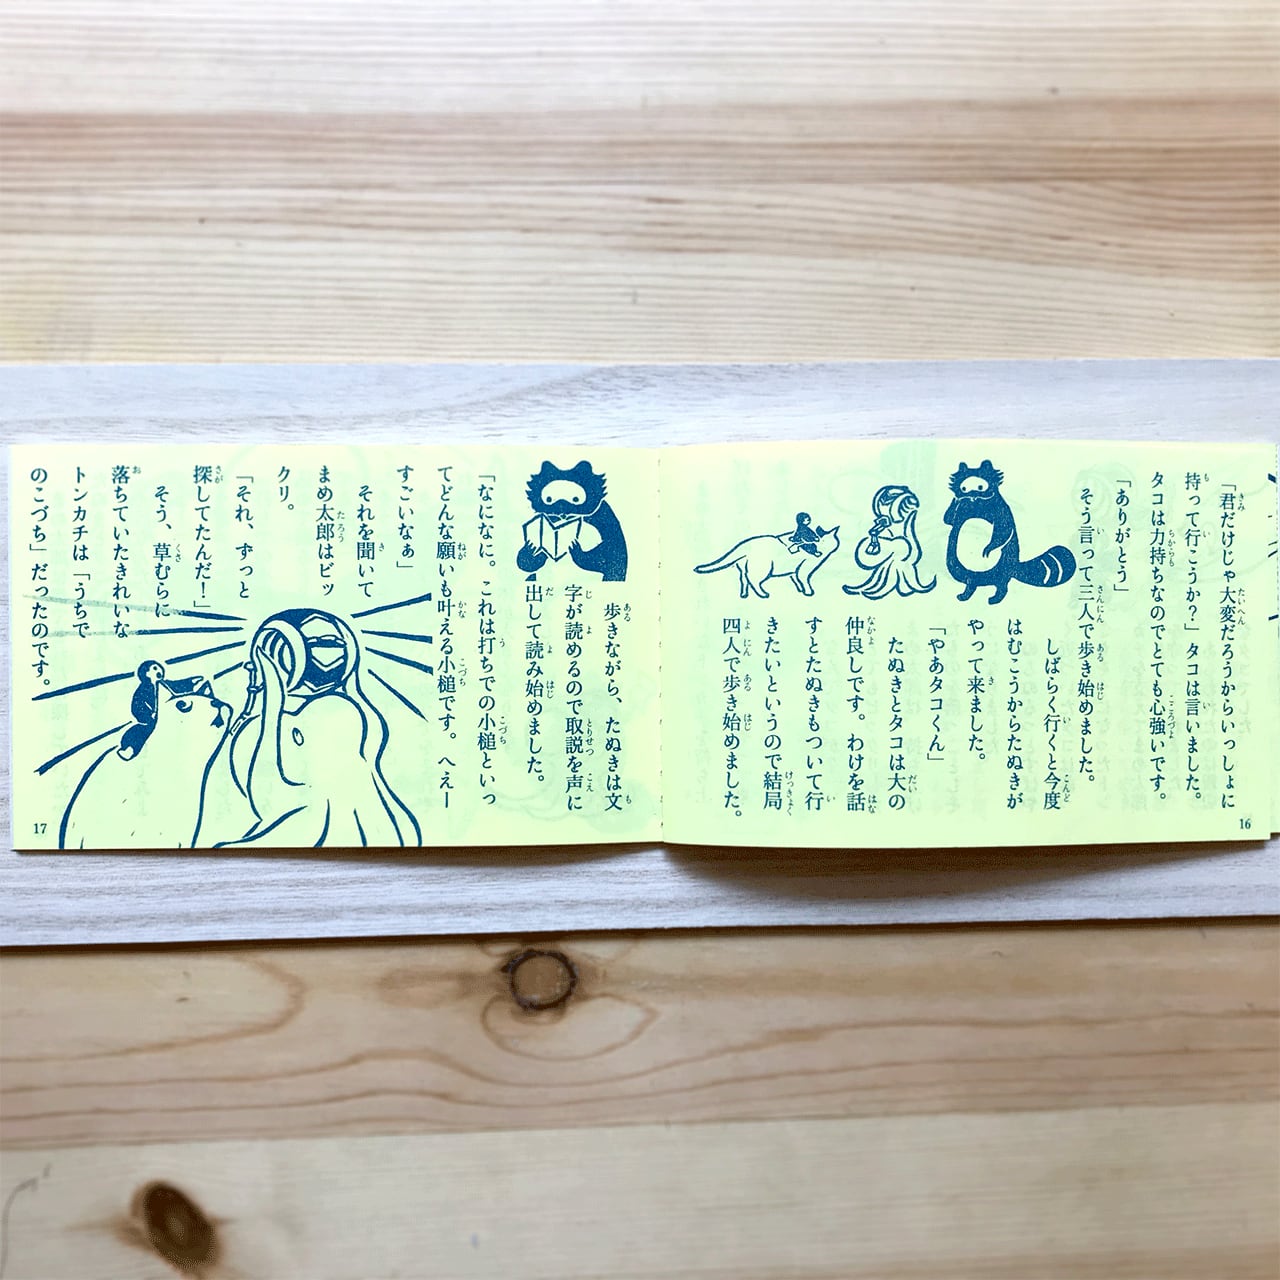 「君だけじゃ大変だろうからいっしょに
持って行こうか？」タコは言いました。
タコは力持ちなのでとても心強いです。
「ありがとう」
そう言って三人で歩き始めました。
しばらく行くと今度
はむこうからたぬきが
やって来ました。
「やあタコくん」
たぬきとタコは大の
仲良しです。わけを話
すとたぬきもついて行
きたいというので結局
四人で歩き始めました。
16
歩きながら、たぬきは文
字が読めるので取説を声に
出して読み始めました。
「なになに。これは打ちでの小槌といっ
てどんな願いも叶える小槌です。へえー
すごいなぁ」
それを聞いて
まめ太郎はビッ
クリ。
「それ、ずっと
探してたんだ！」
そう、草むらに
落ちていたきれいな
トンカチは「うちで
のこづち」だったのです。
17